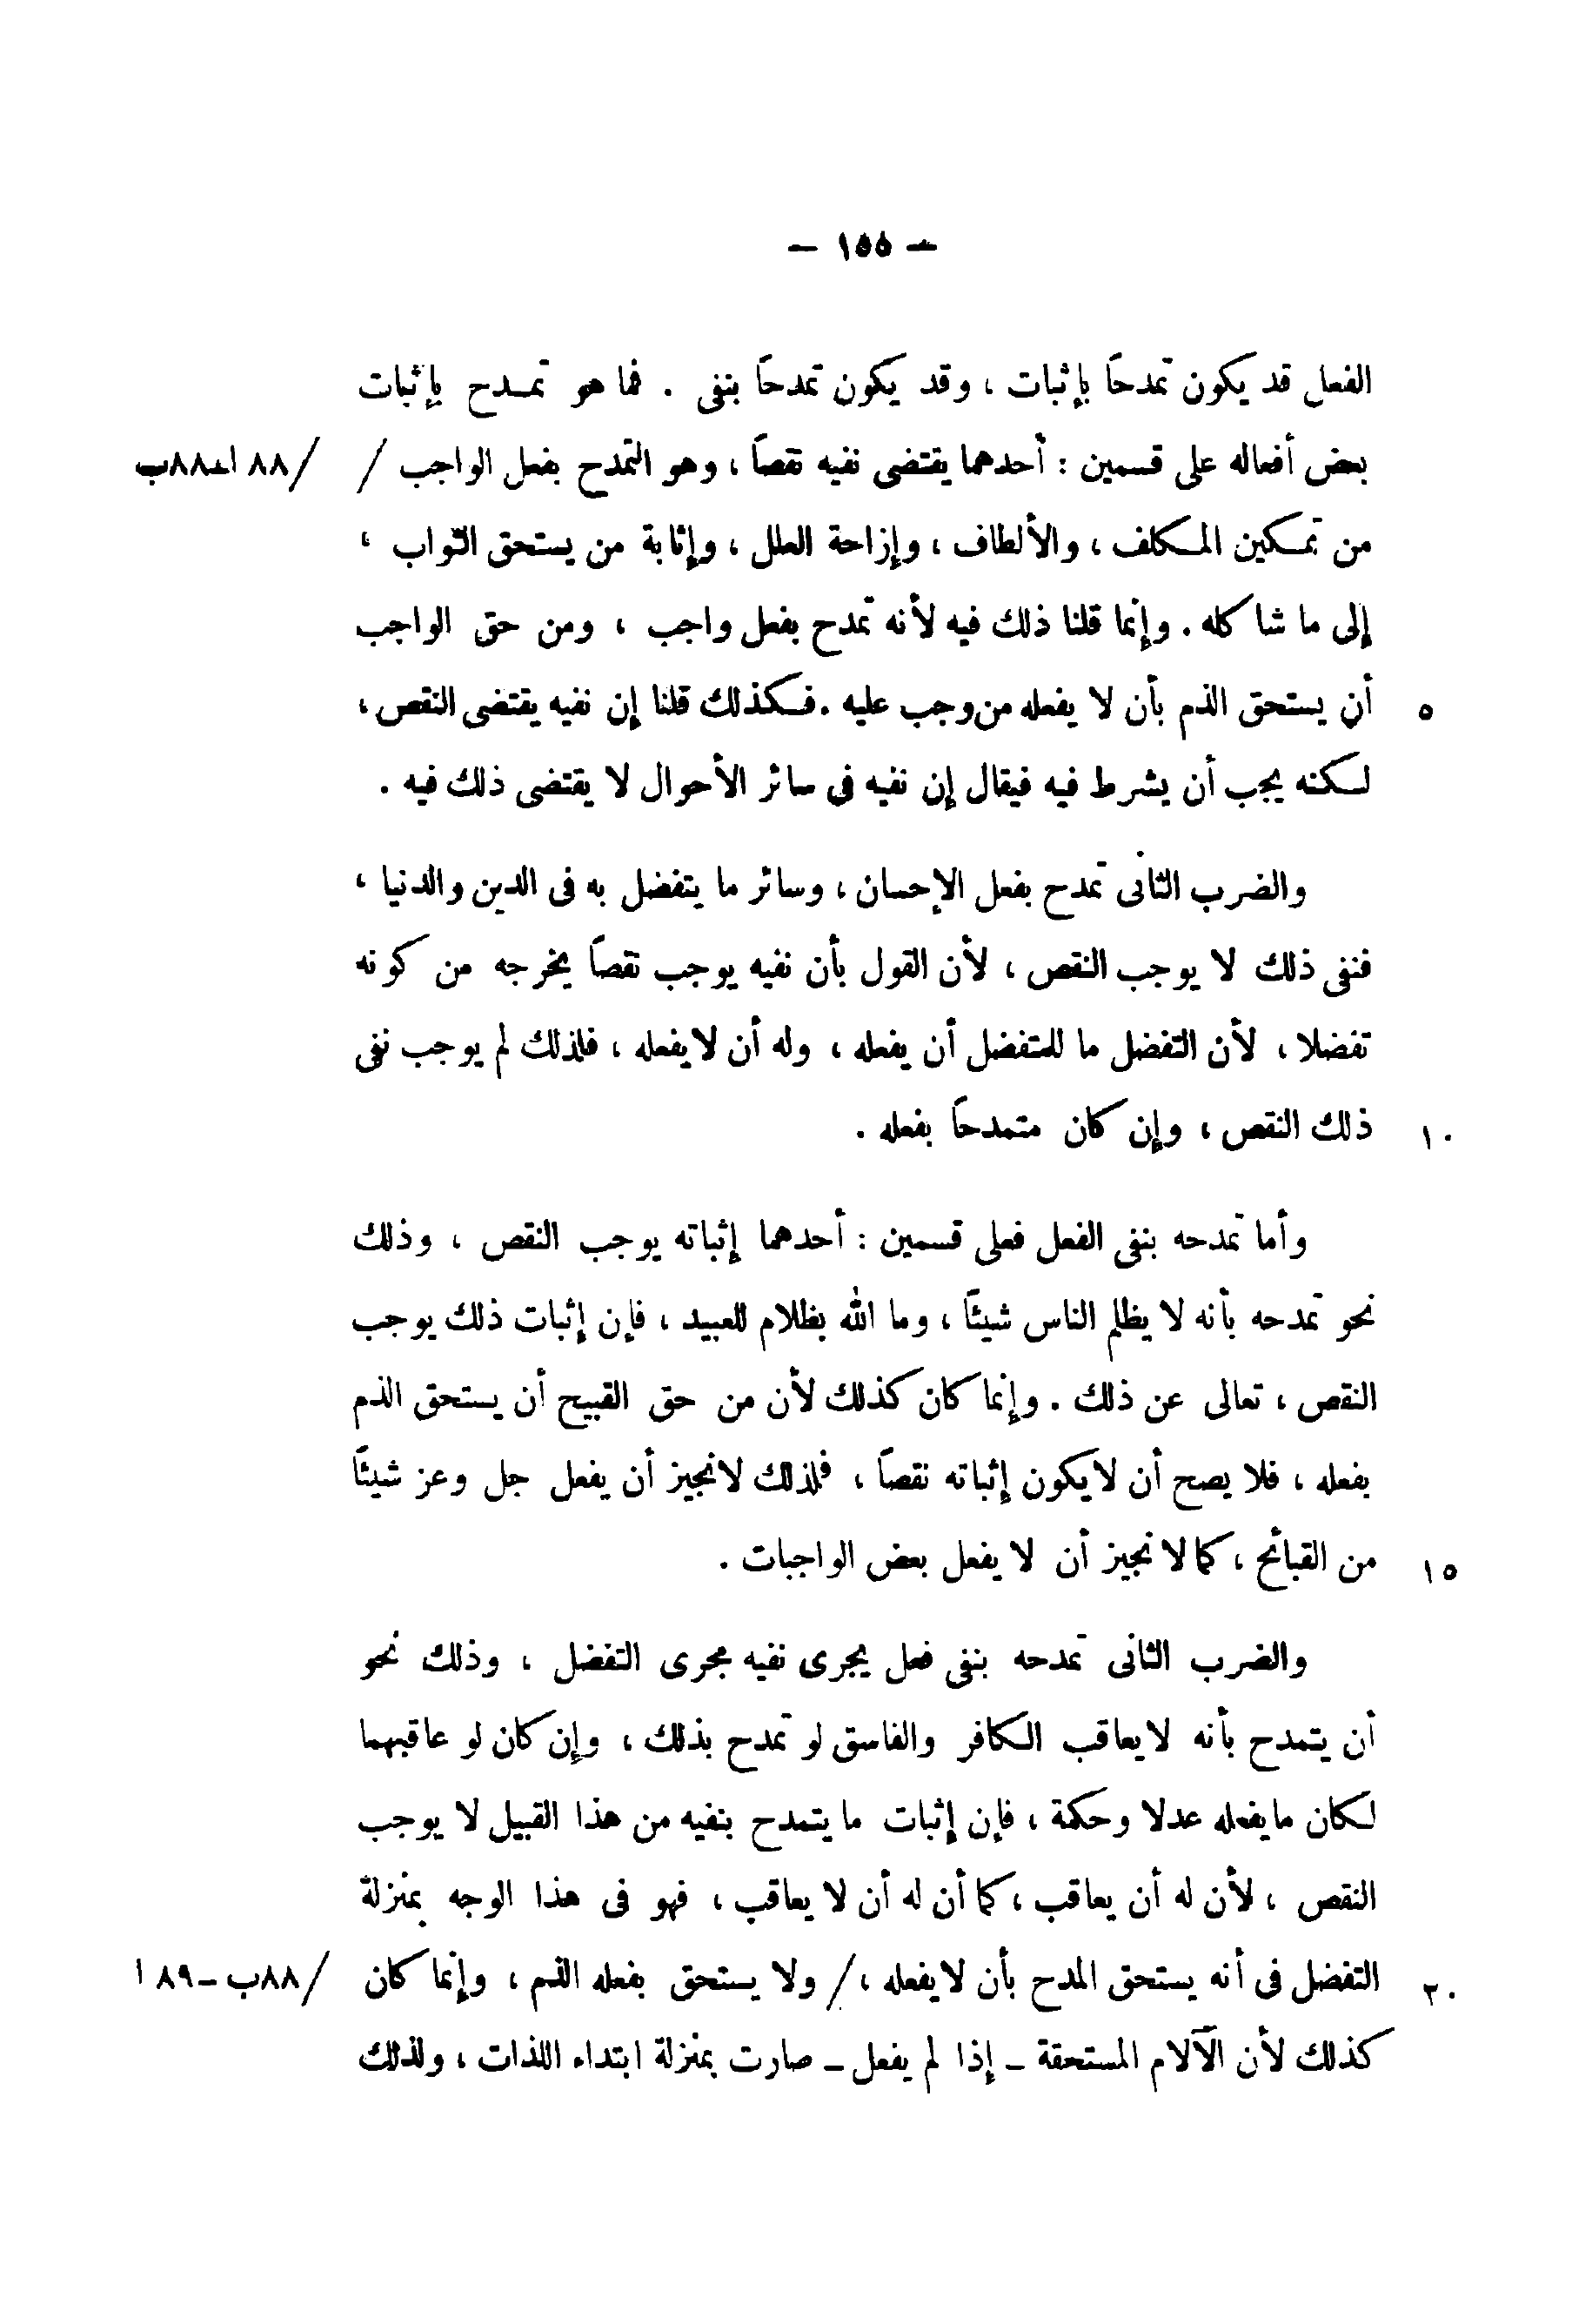 — ١٥٥ —
الفعل قد يكون تمدحاً بإثبات ، وقد يكون تمدحاً بنفى . فما هو تمـدح بإثبات
بعض أفعاله على قسمين : أحدهما يقتضى نفيه نقصاً ، وهو التمدح بفعل الواجب / /٨٨ا-٨٨ب
من تمـكين المـكلف ، والألطاف ، وإزاحة العلل ، وإثابة من يستحق الثواب ،
إلى ما شاكله . وإنما قلنا ذلك فيه لأنه تمدح بفعل واجب ، ومن حق الواجب
٥ أن يستحق الذم بأن لا يفعله من وجب عليه . فـكذلك قلنا إن نفيه يقتضى النقص ،
لـكنه يجب أن يشرط فيه فيقال إن نفيه فى سائر الأحوال لا يقتضى ذلك فيه .
والضرب الثانى تمدح بفعل الإحسان ، وسائر ما يتفضل به فى الدين والدنيا ،
فنفى ذلك لا يوجب النقص ، لأن القول بأن نفيه يوجب نقصاً يخرجه من كونه
تفضلا ، لأن التفضل ما للمتفضل أن يفعله ، وله أن لا يفعله ، فلذلك لم يوجب نفى
١٠ ذلك النقص ، وإن كان متمدحاً بفعله .
وأما تمدحه بنفى الفعل فعلى قسمين : أحدهما إثباته يوجب النقص ، وذلك
نحو تمدحه بأنه لا يظلم الناس شيئاً ، وما الله بظلام للعبيد ، فإن إثبات ذلك يوجب
النقص ، تعالى عن ذلك . وإنما كان كذلك لأن من حق القبيح أن يستحق الذم
بفعله ، فلا يصح أن لا يكون إثباته نقصاً ، فلذلك لا نجيز أن يفعل جل وعز شيئاً
١٥ من القبائح ، كما لا نجيز أن لا يفعل بعض الواجبات .
والضرب الثانى تمدحه بنفى فعل يجرى نفيه مجرى التفضل ، وذلك نحو
أن يتمدح بأنه لا يعاقب الـكافر والفاسق لو تمدح بذلك ، وإن كان لو عاقبهما
لـكان ما يفعله عدلا وحكمة ، فإن إثبات ما يتمدح بنفيه من هذا القبيل لا يوجب
النقص ، لأن له أن يعاقب ، كما أن له أن لا يعاقب ، فهو فى هذا الوجه بمنزلة
٢٠ التفضل فى أنه يستحق المدح بأن لا يفعله ، / ولا يستحق بفعله الذم ، وإنما كان /٨٨ب - ٨٩ا
كذلك لأن الآلام المستحقة - إذا لم يفعل - صارت بمنزلة ابتداء اللذات ، ولذلك